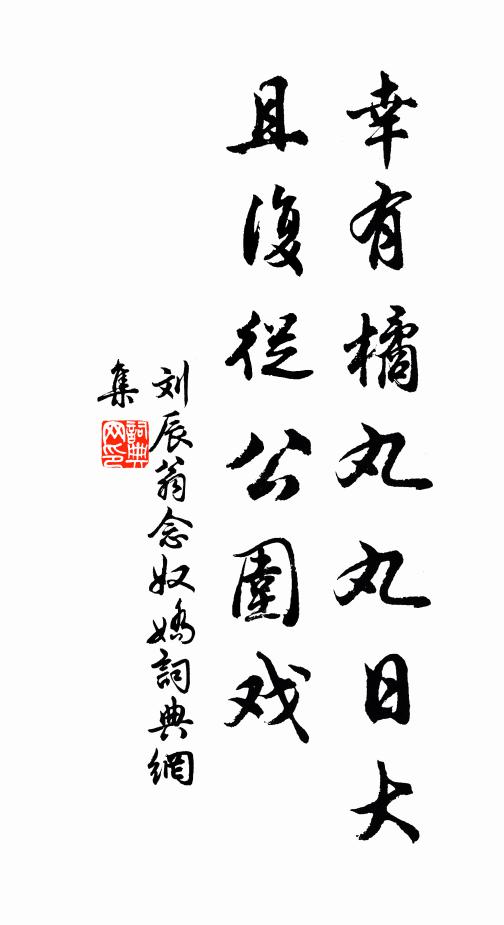 幸有橘丸丸日大
且復從公圍戏
刘辰翁念奴嬌詞典網
集
詞典
网印